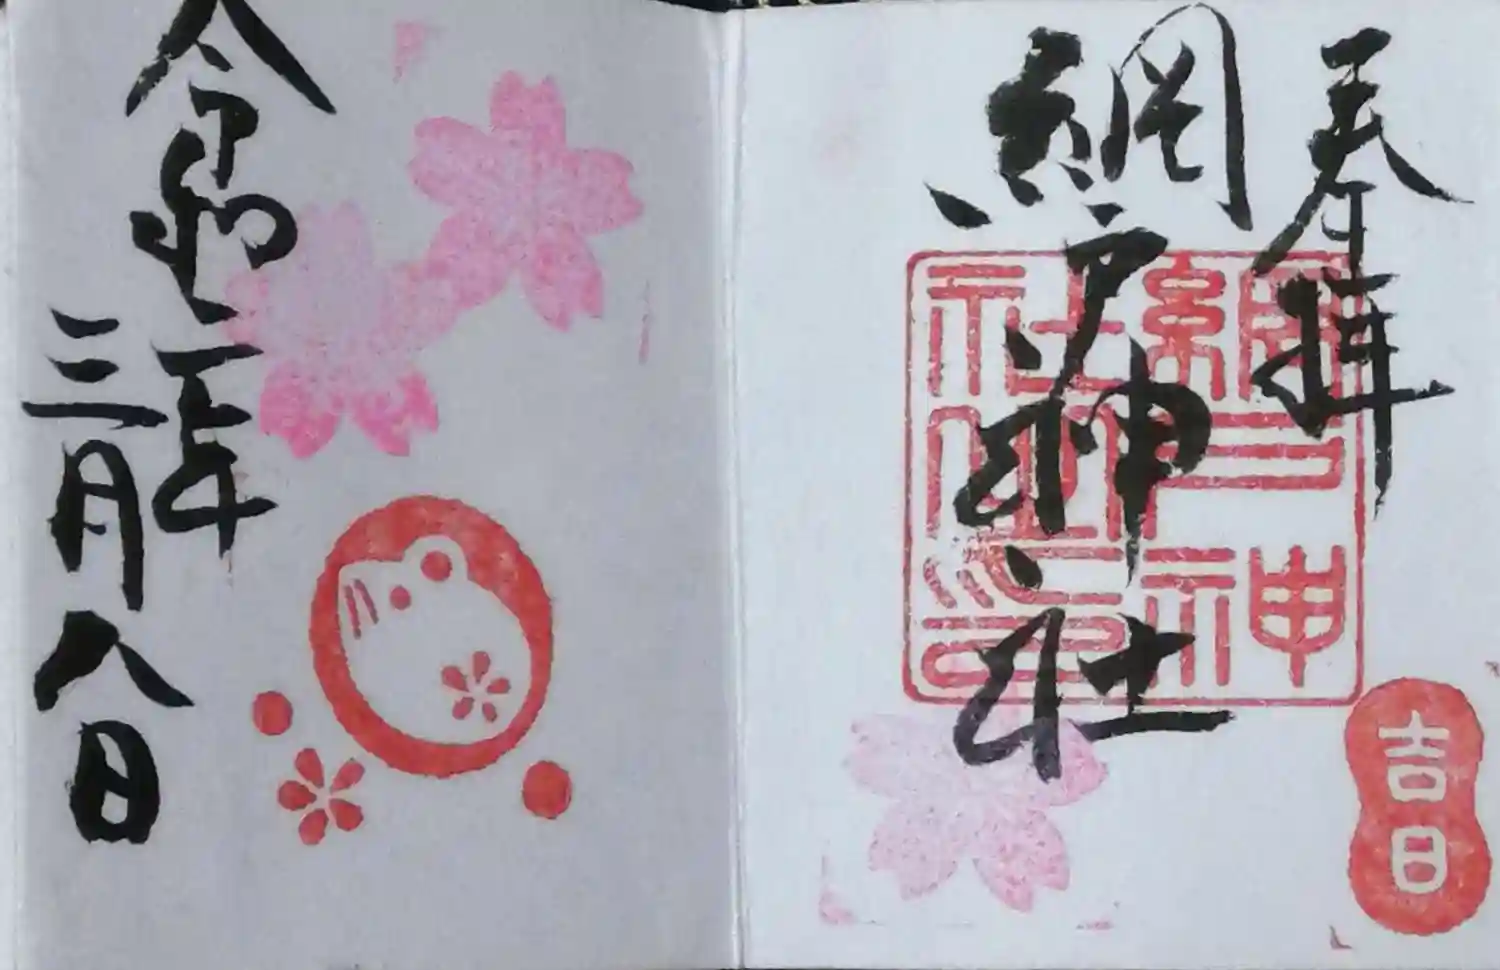 奉拝
網戸神社
網戸神
社
吉日
令和二年
三月八日